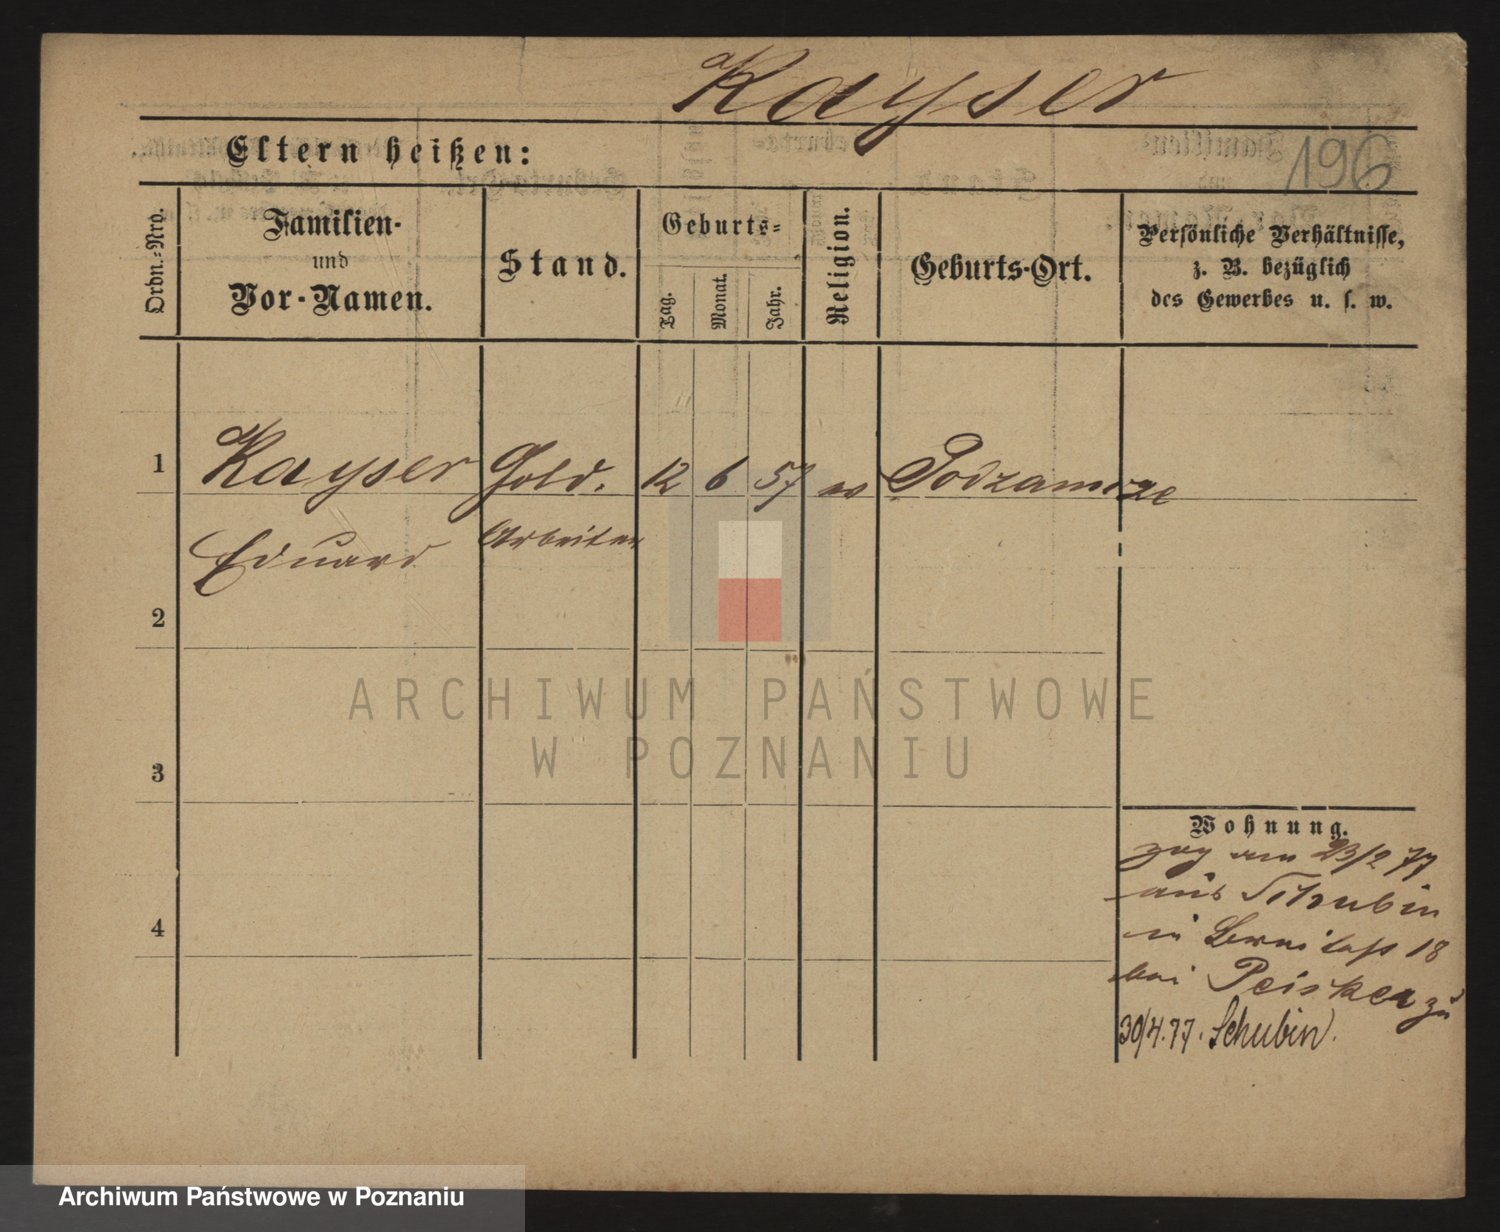 Kayser
Eltern heißen:
196
Ordn.-Nro.
Familien-
und
Vor-Namen.
Stand.
Geburts-
Tag.
Monat.
Jahr.
Religion.
Geburts-Ort.
Persönliche Verhältnisse,
z. B. bezüglich
des Gewerbes u. s. w.
1
Kayser Gold. 12 6 57 ev Podzamcze
Eduard Arbeiter
2
3
4
Wohnung.
zog am 23/2 77
aus Schubin
in 18
bei Peisker zu
30/4.77. Schubin.
ARCHIWUM PAŃSTWOWE
W POZNANIU
Archiwum Państwowe w Poznaniu